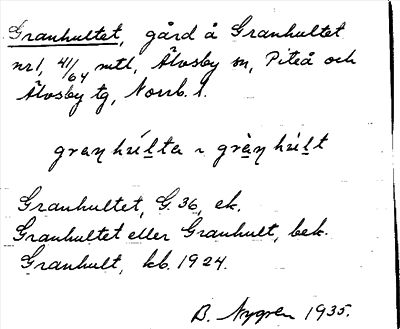 Granhultet, gård å Granhultet
nr 1, 41/64 mtl, Älvsby sn, Piteå och
Älvsby tg, Norrb. l.
granhúl̲ta ~ grànhúl̲t
Granhultet, G. 36, ek.
Granhultet eller Granhult, bek.
Granhult, kb. 1924.
B. Nygren 1935.